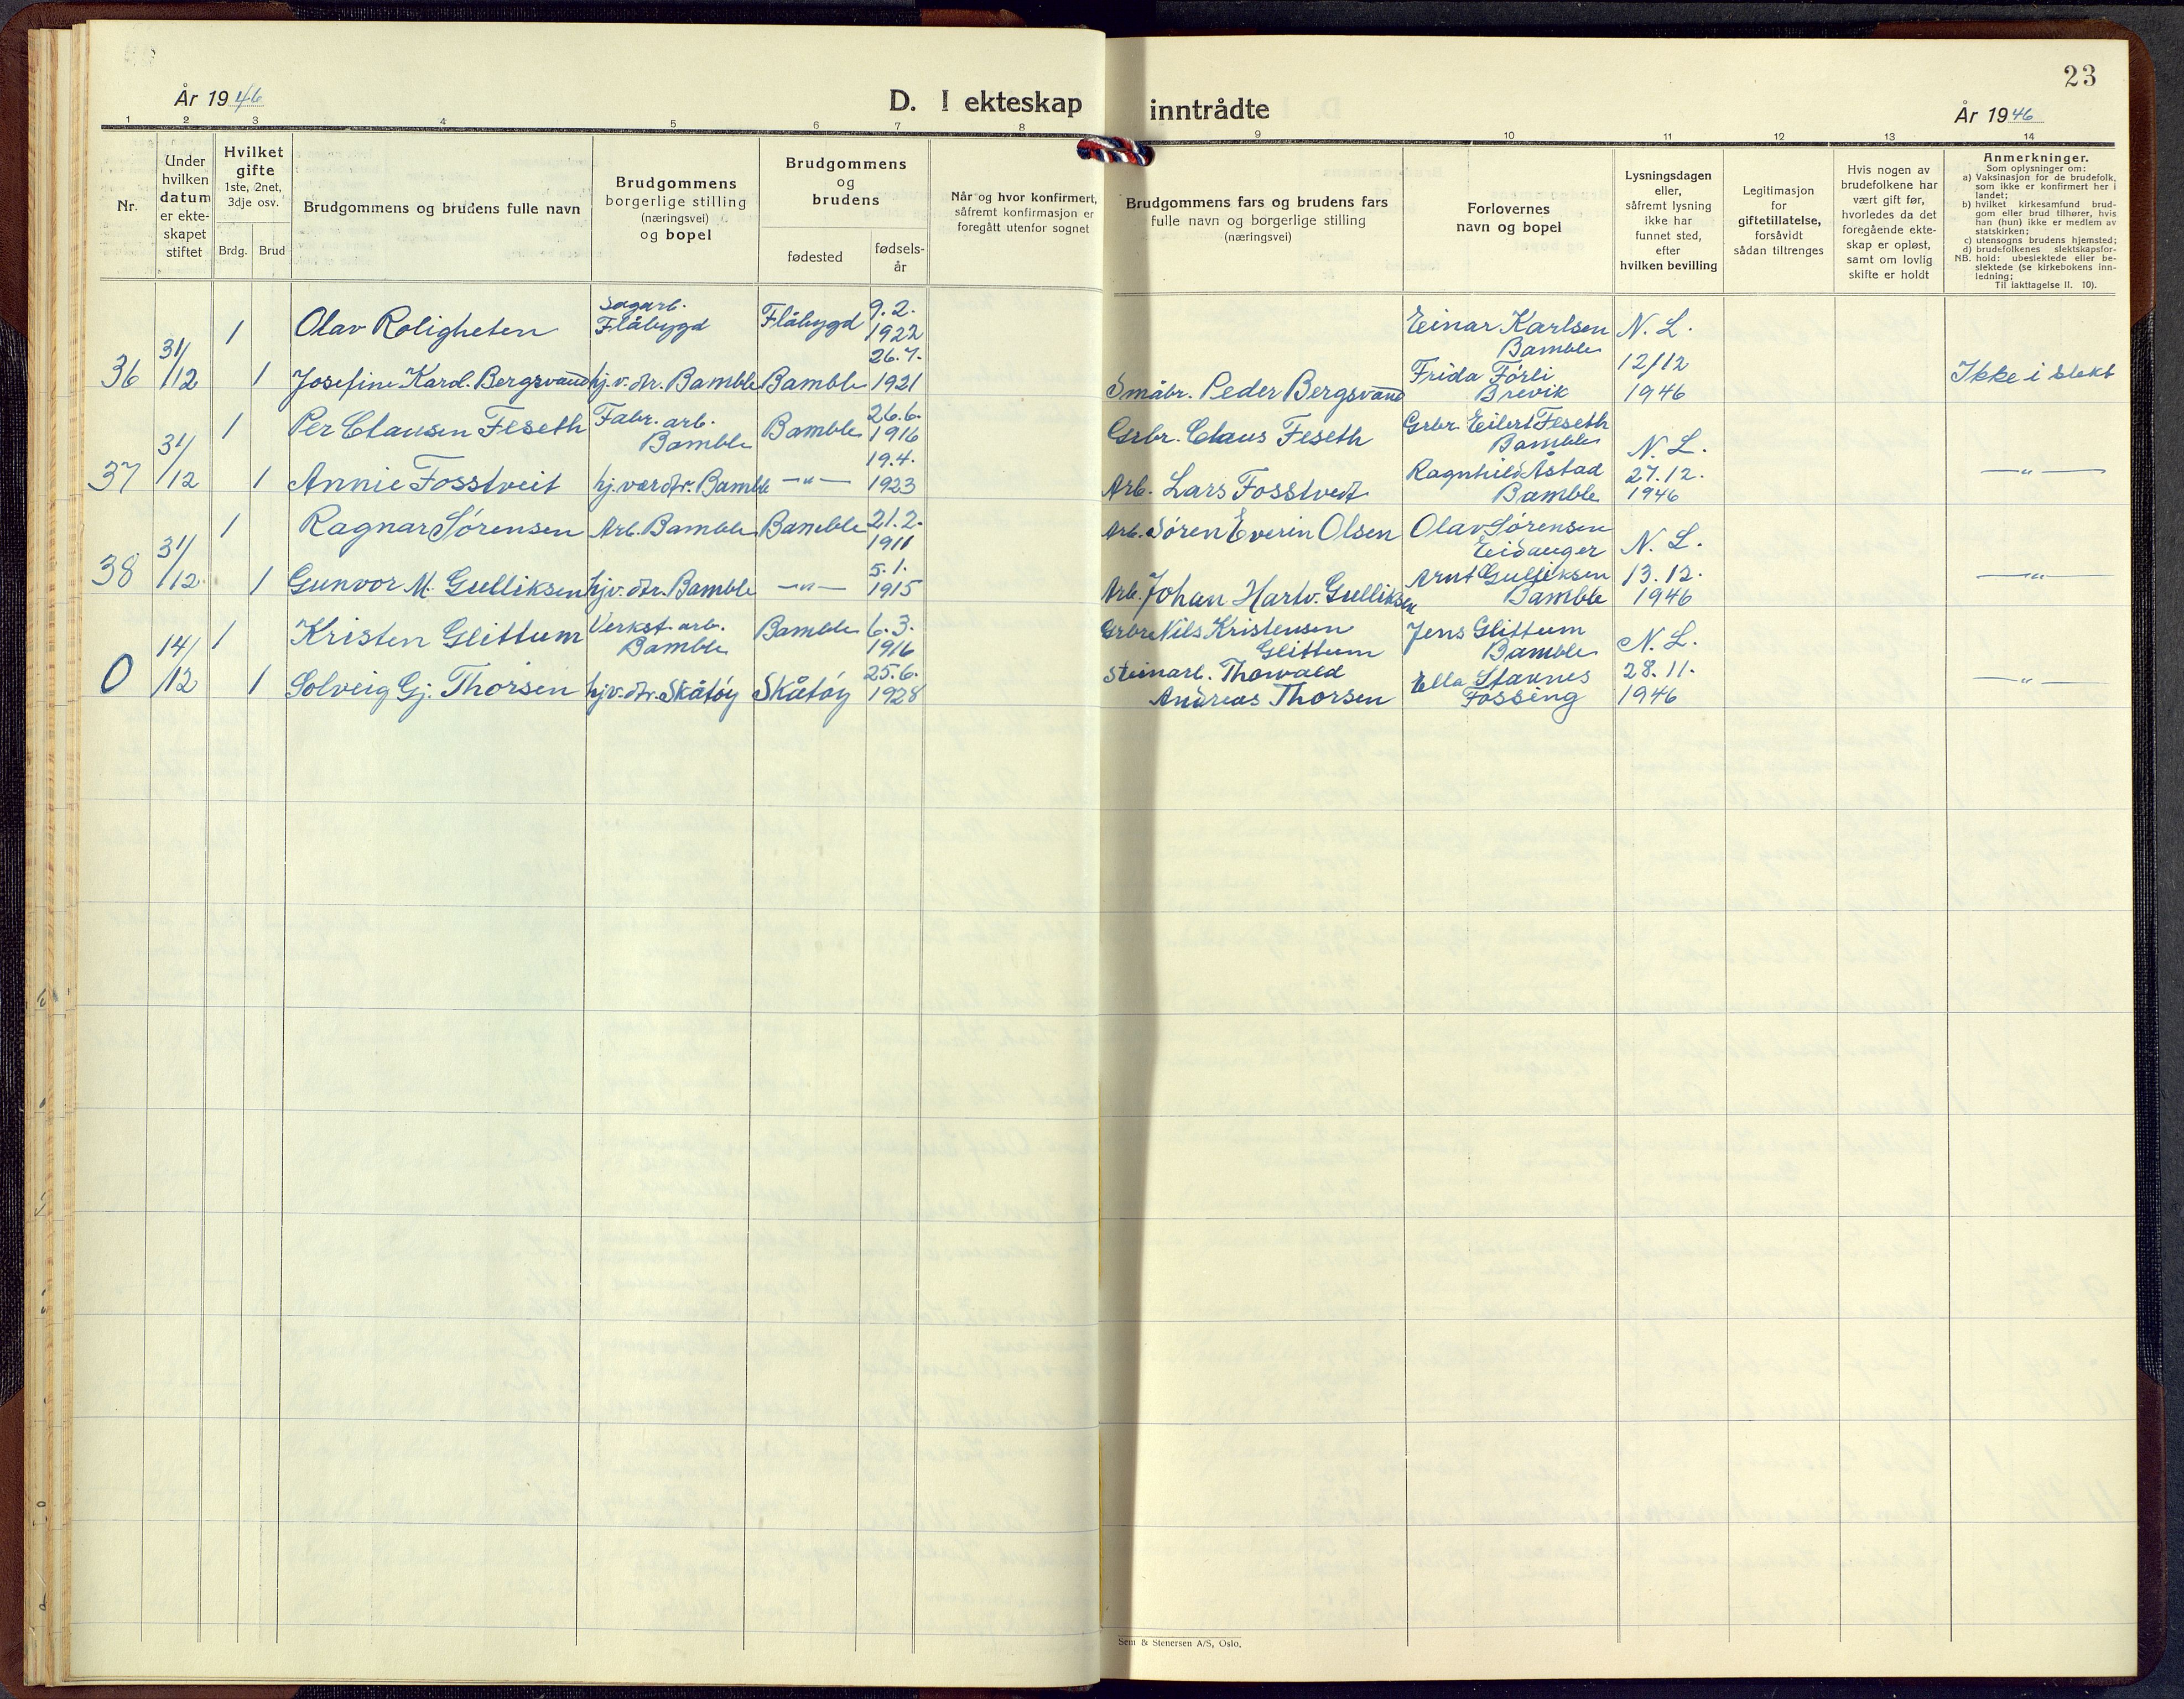 23
År 1946
D. I ekteskap inntrådte
År 1946
1 2 3 4 5 6 7 8 9 10 11 12 13 14
Nr.
Under
hvilken
datum
er ekte-
skapet
stiftet
Hvilket
gifte
1ste, 2net,
3dje osv.
Brdg. Brud
Brudgommens og brudens fulle navn
Brudgommens
borgerlige stilling
(næringsvei)
og bopel
Brudgommens
og
brudens
fødested
fødsels-
år
Når og hvor konfirmert,
såfremt konfirmasjon er
foregått utenfor sognet
Brudgommens fars og brudens fars
fulle navn og borgerlige stilling
(næringsvei)
Forlovernes
navn og bopel
Lysningsdagen
eller,
såfremt lysning
ikke har
funnet sted,
efter
hvilken bevilling
Legitimasjon
for
giftetillatelse,
forsåvidt
sådan tiltrenges
Hvis nogen av
brudefolkene har
vært gift før,
hvorledes da det
foregående ekte-
skap er opløst,
samt om lovlig
skifte er holdt
Anmerkninger.
Som oplysninger om:
a) Vaksinasjon for de brudefolk,
som ikke er konfirmert her i
landet;
b) hvilket kirkesamfund brud-
gom eller brud tilhører, hvis
han (hun) ikke er medlem av
statskirken;
c) utensogns brudens hjemsted;
d) brudefolkenes slektskapsfor-
NB. hold: ubeslektede eller be-
slektede (se kirkebokens inn-
ledning;
Til iakttagelse II. 10).
36
31/12
1
Olav Roligheten
Sagarb.
Flåbygd
Flåbygd
9.2.
1922
Einar Karlsen
Bamble
N. L.
12/12
1946
1
Josefine Karol. Bergsvand
hj.v. dtr. Bamble
Bamble
26.7.
1921
Småbr. Peder Bergsvand
Frida Førli
Brevik
Ikke i slekt
37
31/12
1
Per Clausen Feseth
Fabr. arb.
Bamble
Bamble
26.6.
1916
Grbr. Claus Feseth
Grbr. Eilert Feseth
Bamble
N. L.
27.12.
1946
1
Annie Fosstveit
hj.vær dtr. Bamble
—"—
19.4.
1923
Arb. Lars Fosstvedt
Ragnhild Åstad
Bamble
—"—
38
31/12
1
Ragnar Sørensen
Arb. Bamble
Bamble
21.2.
1911
Arb. Søren Everin Olsen
Olav Sørensen
Eidanger
N. L.
13.12.
1946
1
Gunvor M. Gulliksen
hjv. dtr. Bamble
—"—
5.1.
1915
Arb. Johan Hartv. Gulliksen
Arnt Gulliksen
Bamble
—"—
0
14/12
1
Kristen Glittum
Verkst. arb.
Bamble
Bamble
6.3.
1916
Grbr Nils Kristensen
Glittum
Jens Glittum
Bamble
N. L.
28.11.
1946
1
Solveig Gj. Thorsen
hjv. dtr. Skåtøy
Skåtøy
25.6.
1928
Steinarb. Thorvald
Andreas Thorsen
Ella Stavnes
Fossing
—"—
Sem & Stenersen A/S, Oslo.